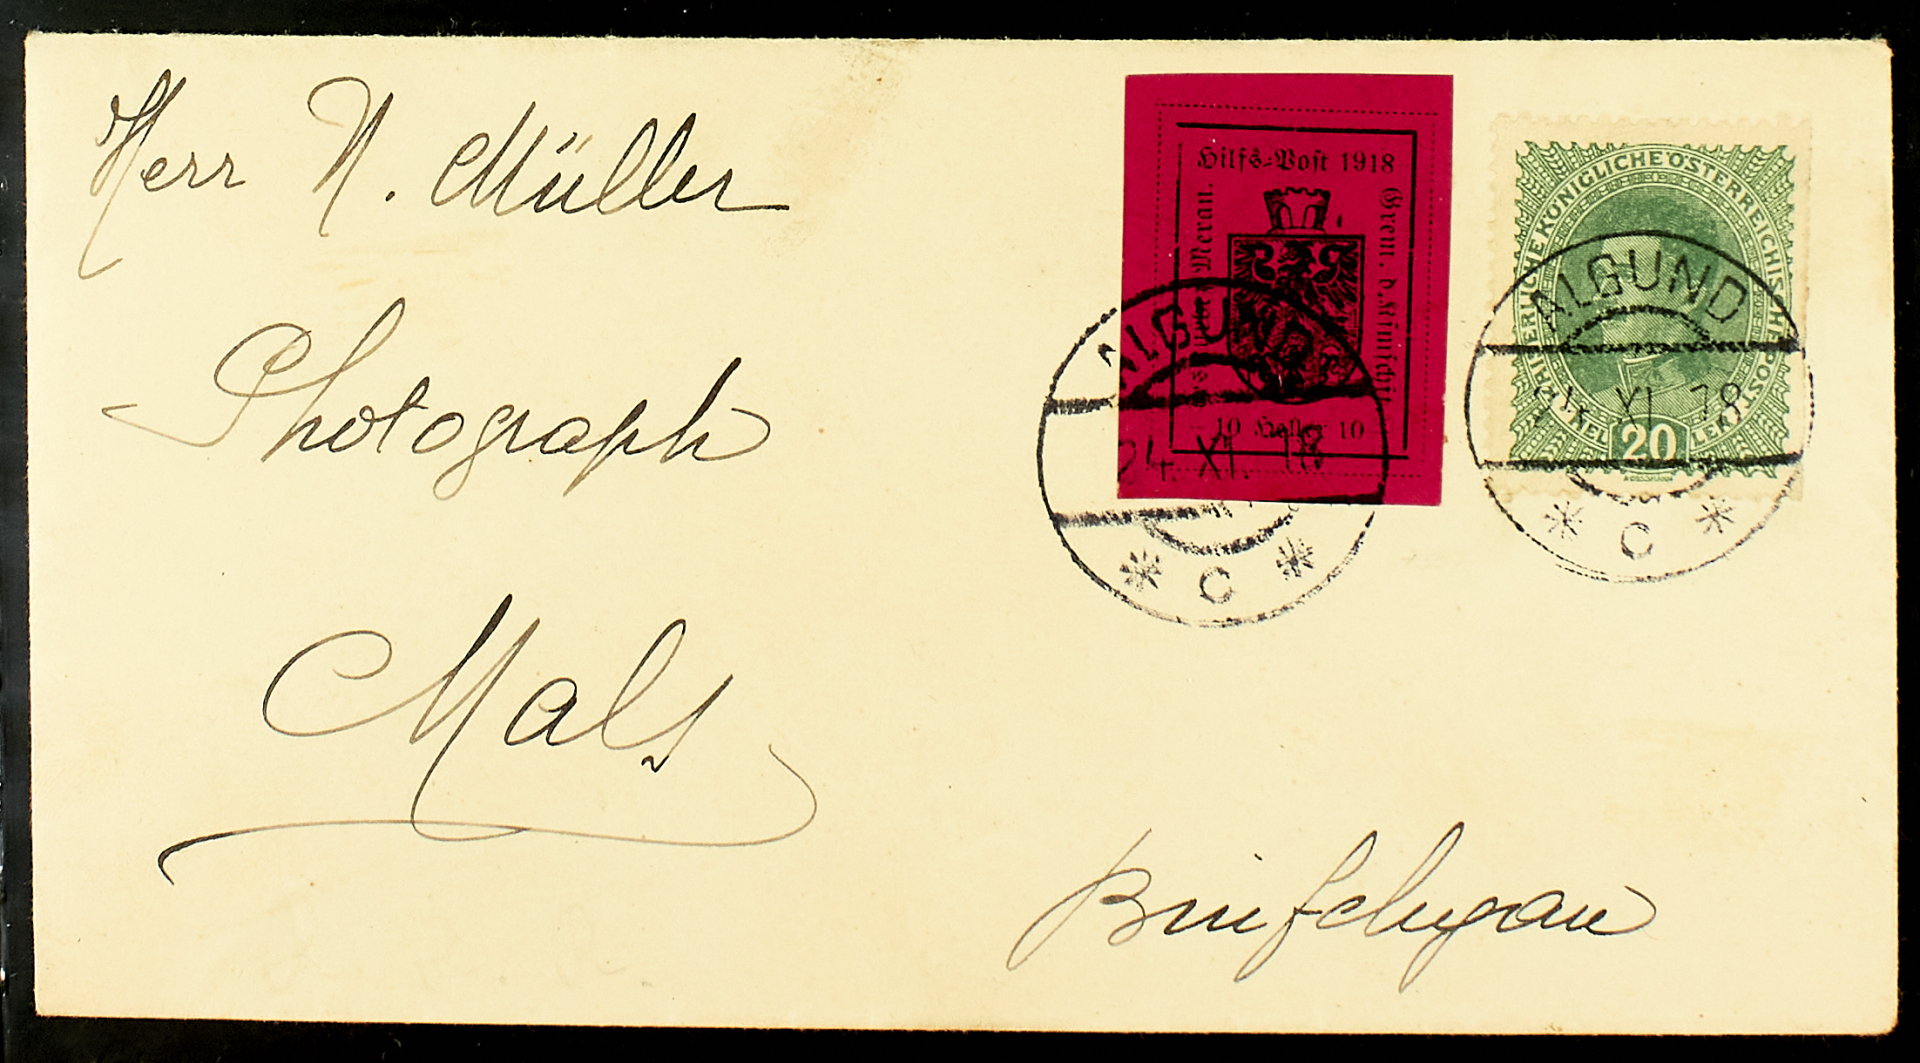 Herr N. Müller
Photograph
Mals
Hilfs-Post 1918
Meran.
10 Heller 10
ALGUND
24. XI. 18
* C *
KAISERLICHE KÖNIGLICHE ÖSTERREICHISCHE POST
20
ALGUND
XI. 18
* C *